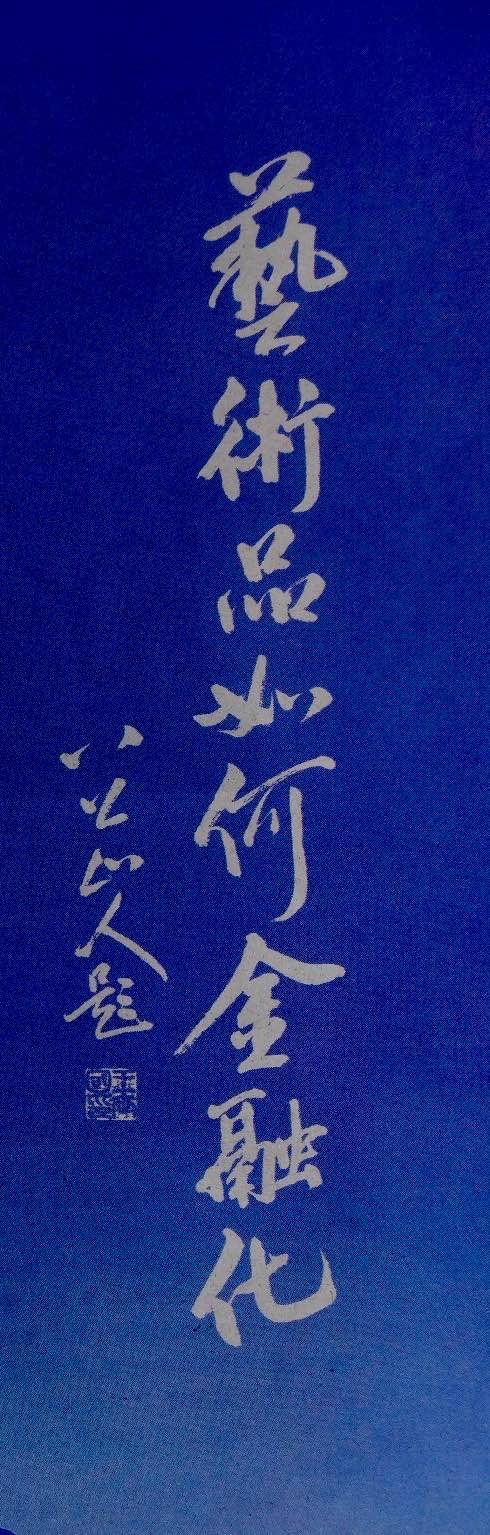 藝術品如何金融化
八公山人題